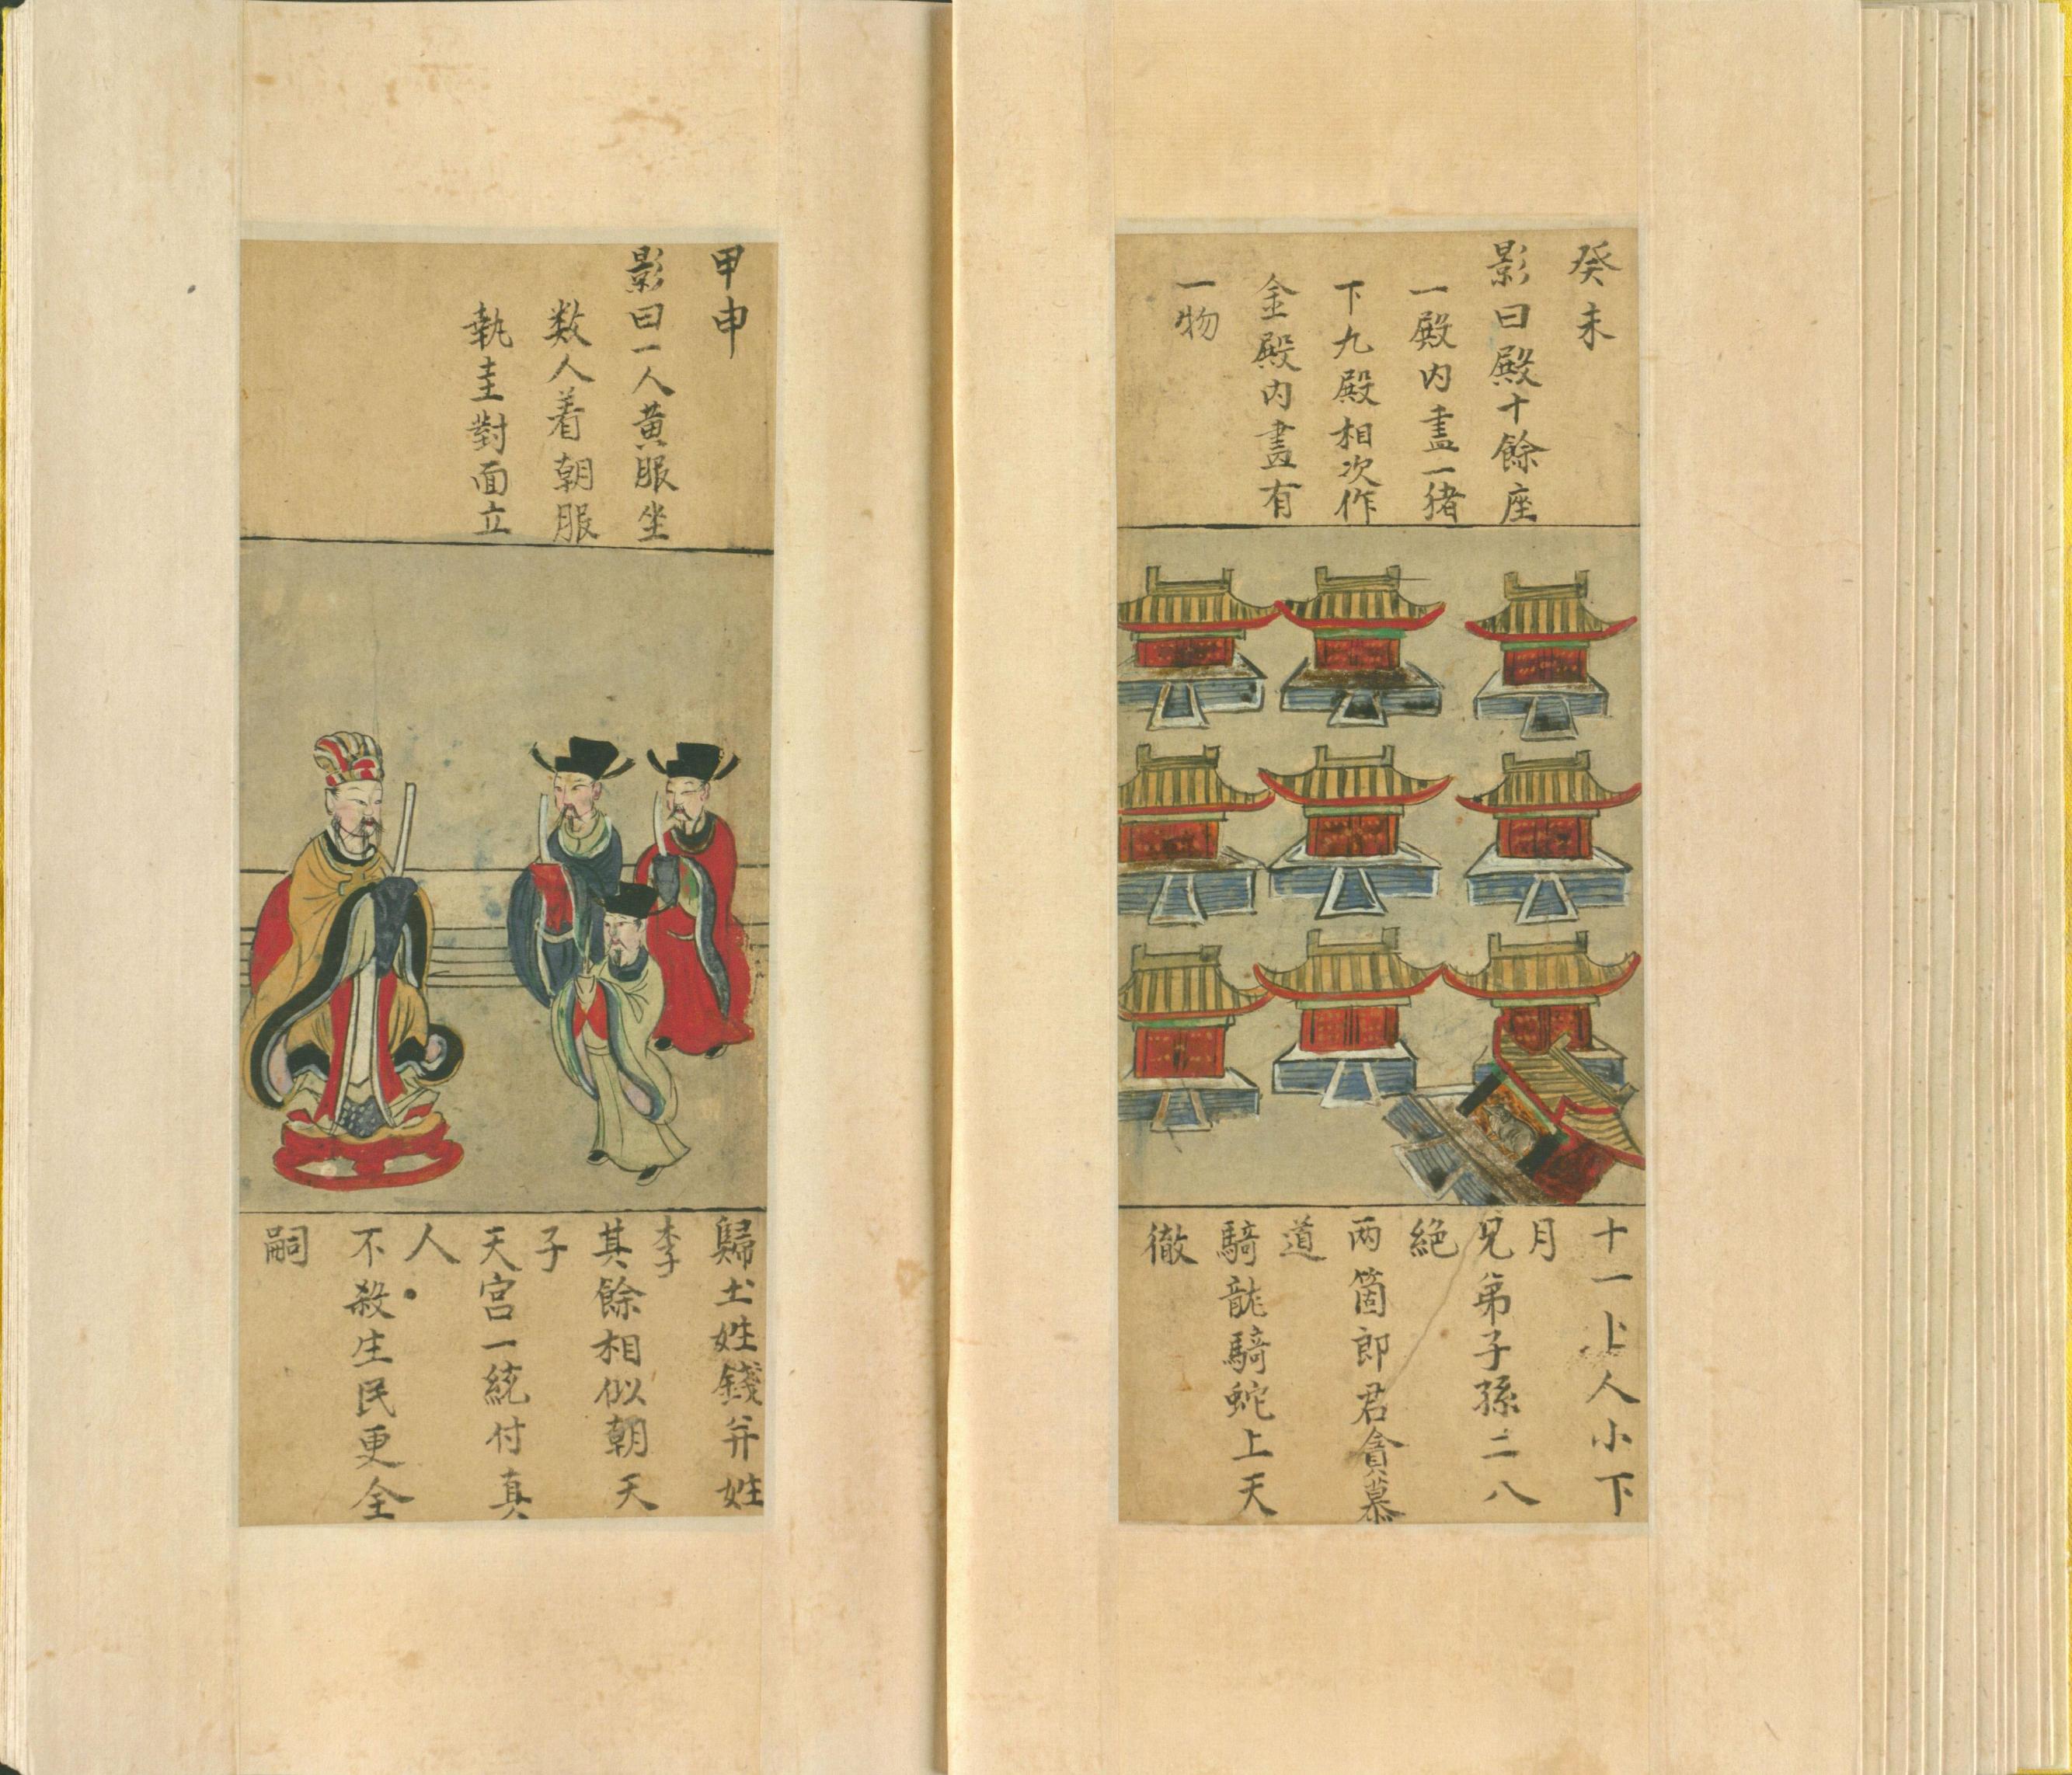 癸未
影曰殿十餘座
一殿内畫一猪
下九殿相次作
金殿内畫有
一物
十一上人小下
月
兄弟子孫二八
絶
两箇郎君貪慕
道
騎龍騎蛇上天
徹
甲申
影曰一人黄服坐
数人着朝服
執圭對面立
歸土姓錢并姓
李
其餘相似朝天
子
天宮一統付真
人
不殺生民更全
嗣